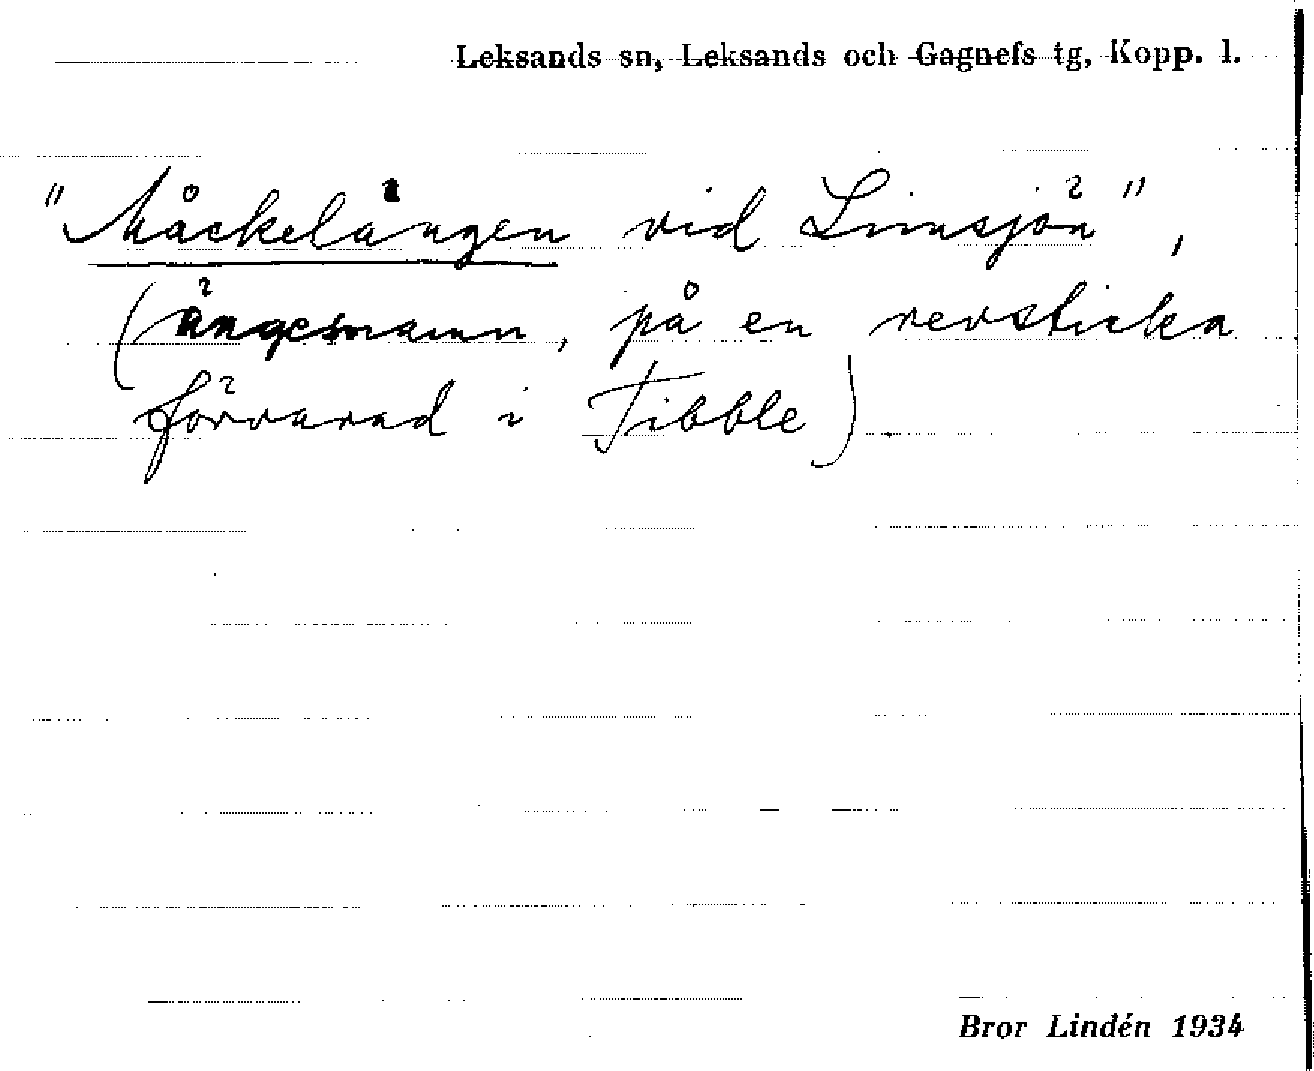 Leksands sn, Leksands och Gagnefs tg, Kopp. l.
"Måckelängen vid Limsjön",
(ängesnamn, på en revsticka
förvarad i Tibble)
Bror Lindén 1934